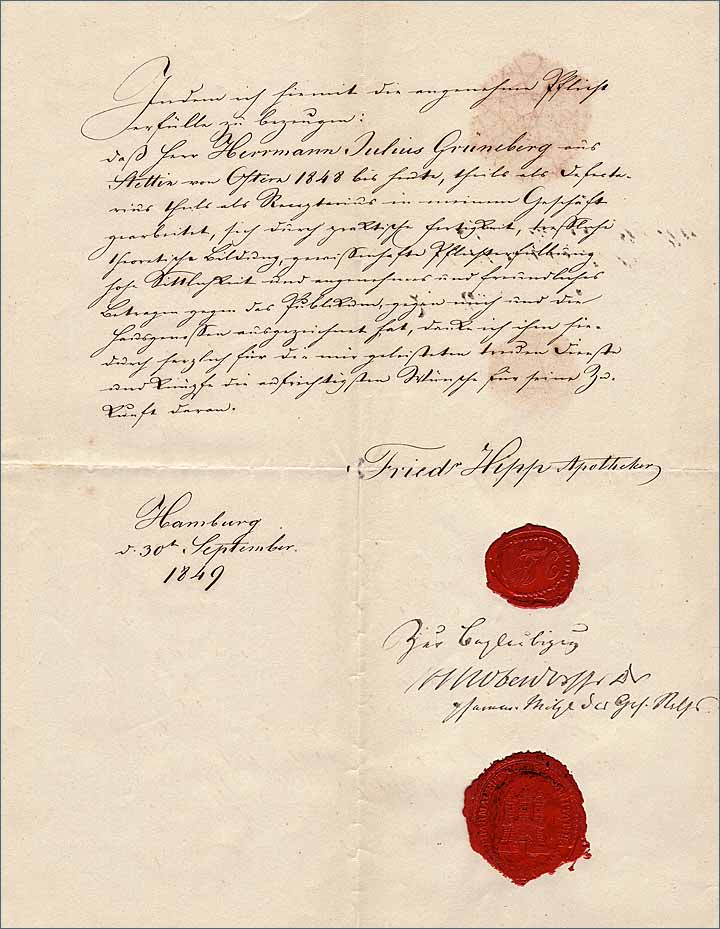 Indem ich hiemit die angenehme Pflicht
erfülle zu bezeugen:
daß Herr Herrmann Julius Grüneberg aus
Stettin von Ostern 1848 bis heute, theils als Defecta-
rius theils als Receptarius in meinem Geschäft
gearbeitet, sich durch praktische Fertigkeit, treffliche
theoretische Bildung, gewissenhafte Pflichterfüllung,
hohe Sittlichkeit und angenehmes und freundliches
Betragen gegen das Publikum, gegen mich und die
Hausgenossen ausgezeichnet hat, danke ich ihm hie-
durch herzlich für die mir geleisteten treuen Dienste
und knüpfe die aufrichtigsten Wünsche für seine Zu-
kunft daran.
Friedr Hipp Apotheker
Hamburg
d. 30t September.
1849
FH
Zur Beglaubigung
Dr
pharmac. Mitgl. des Ges.